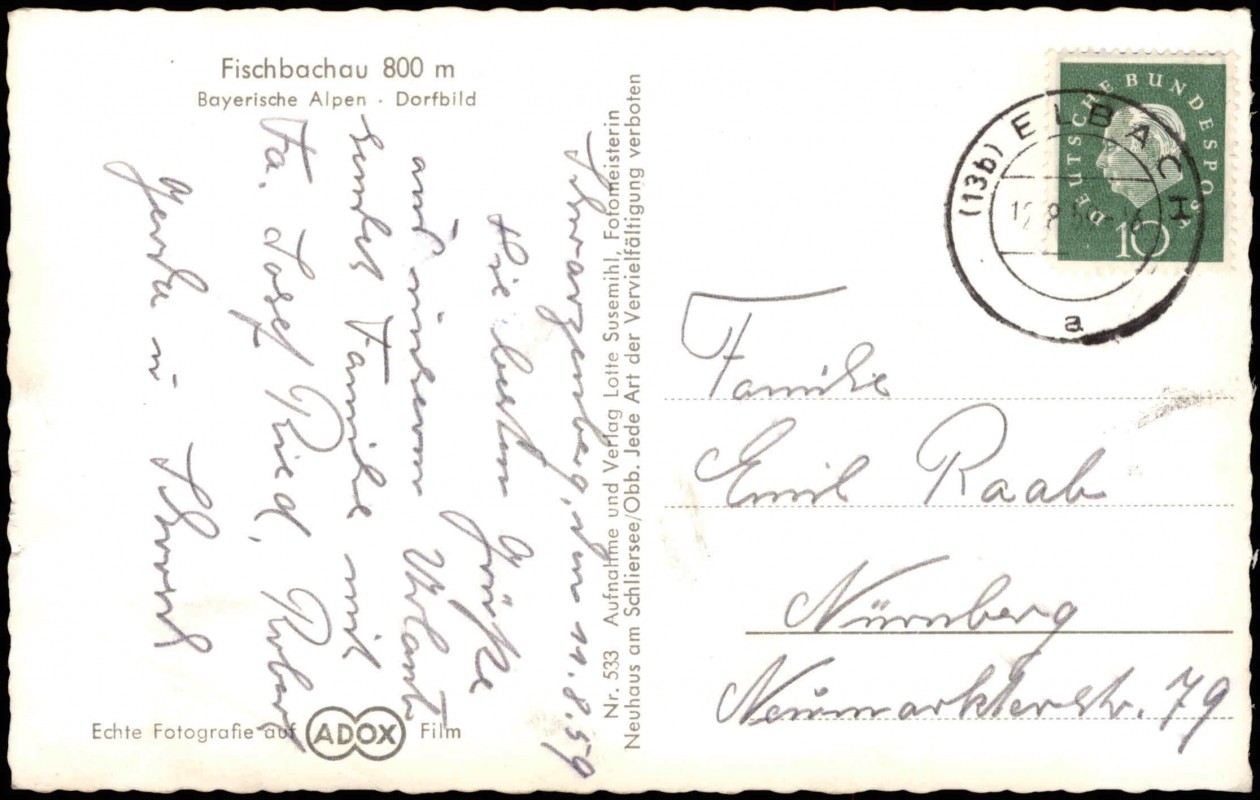 Fischbachau 800 m
Bayerische Alpen · Dorfbild
Schwarzenberg, den 11.8.59
Die besten Grüße
aus unserem Urlaub
sendet Familie mit
Fa. Josef Ried,
Gerda u.
Echte Fotografie auf ADOX Film
Nr. 533 Aufnahme und Verlag Lotte Susemihl, Fotomeisterin
Neuhaus am Schliersee/Obb. Jede Art der Vervielfältigung verboten
DEUTSCHE BUNDESPOST
10
(13b) ELBACH
a
Familie
Emil Raab
Nürnberg
Neumarkterstr. 79